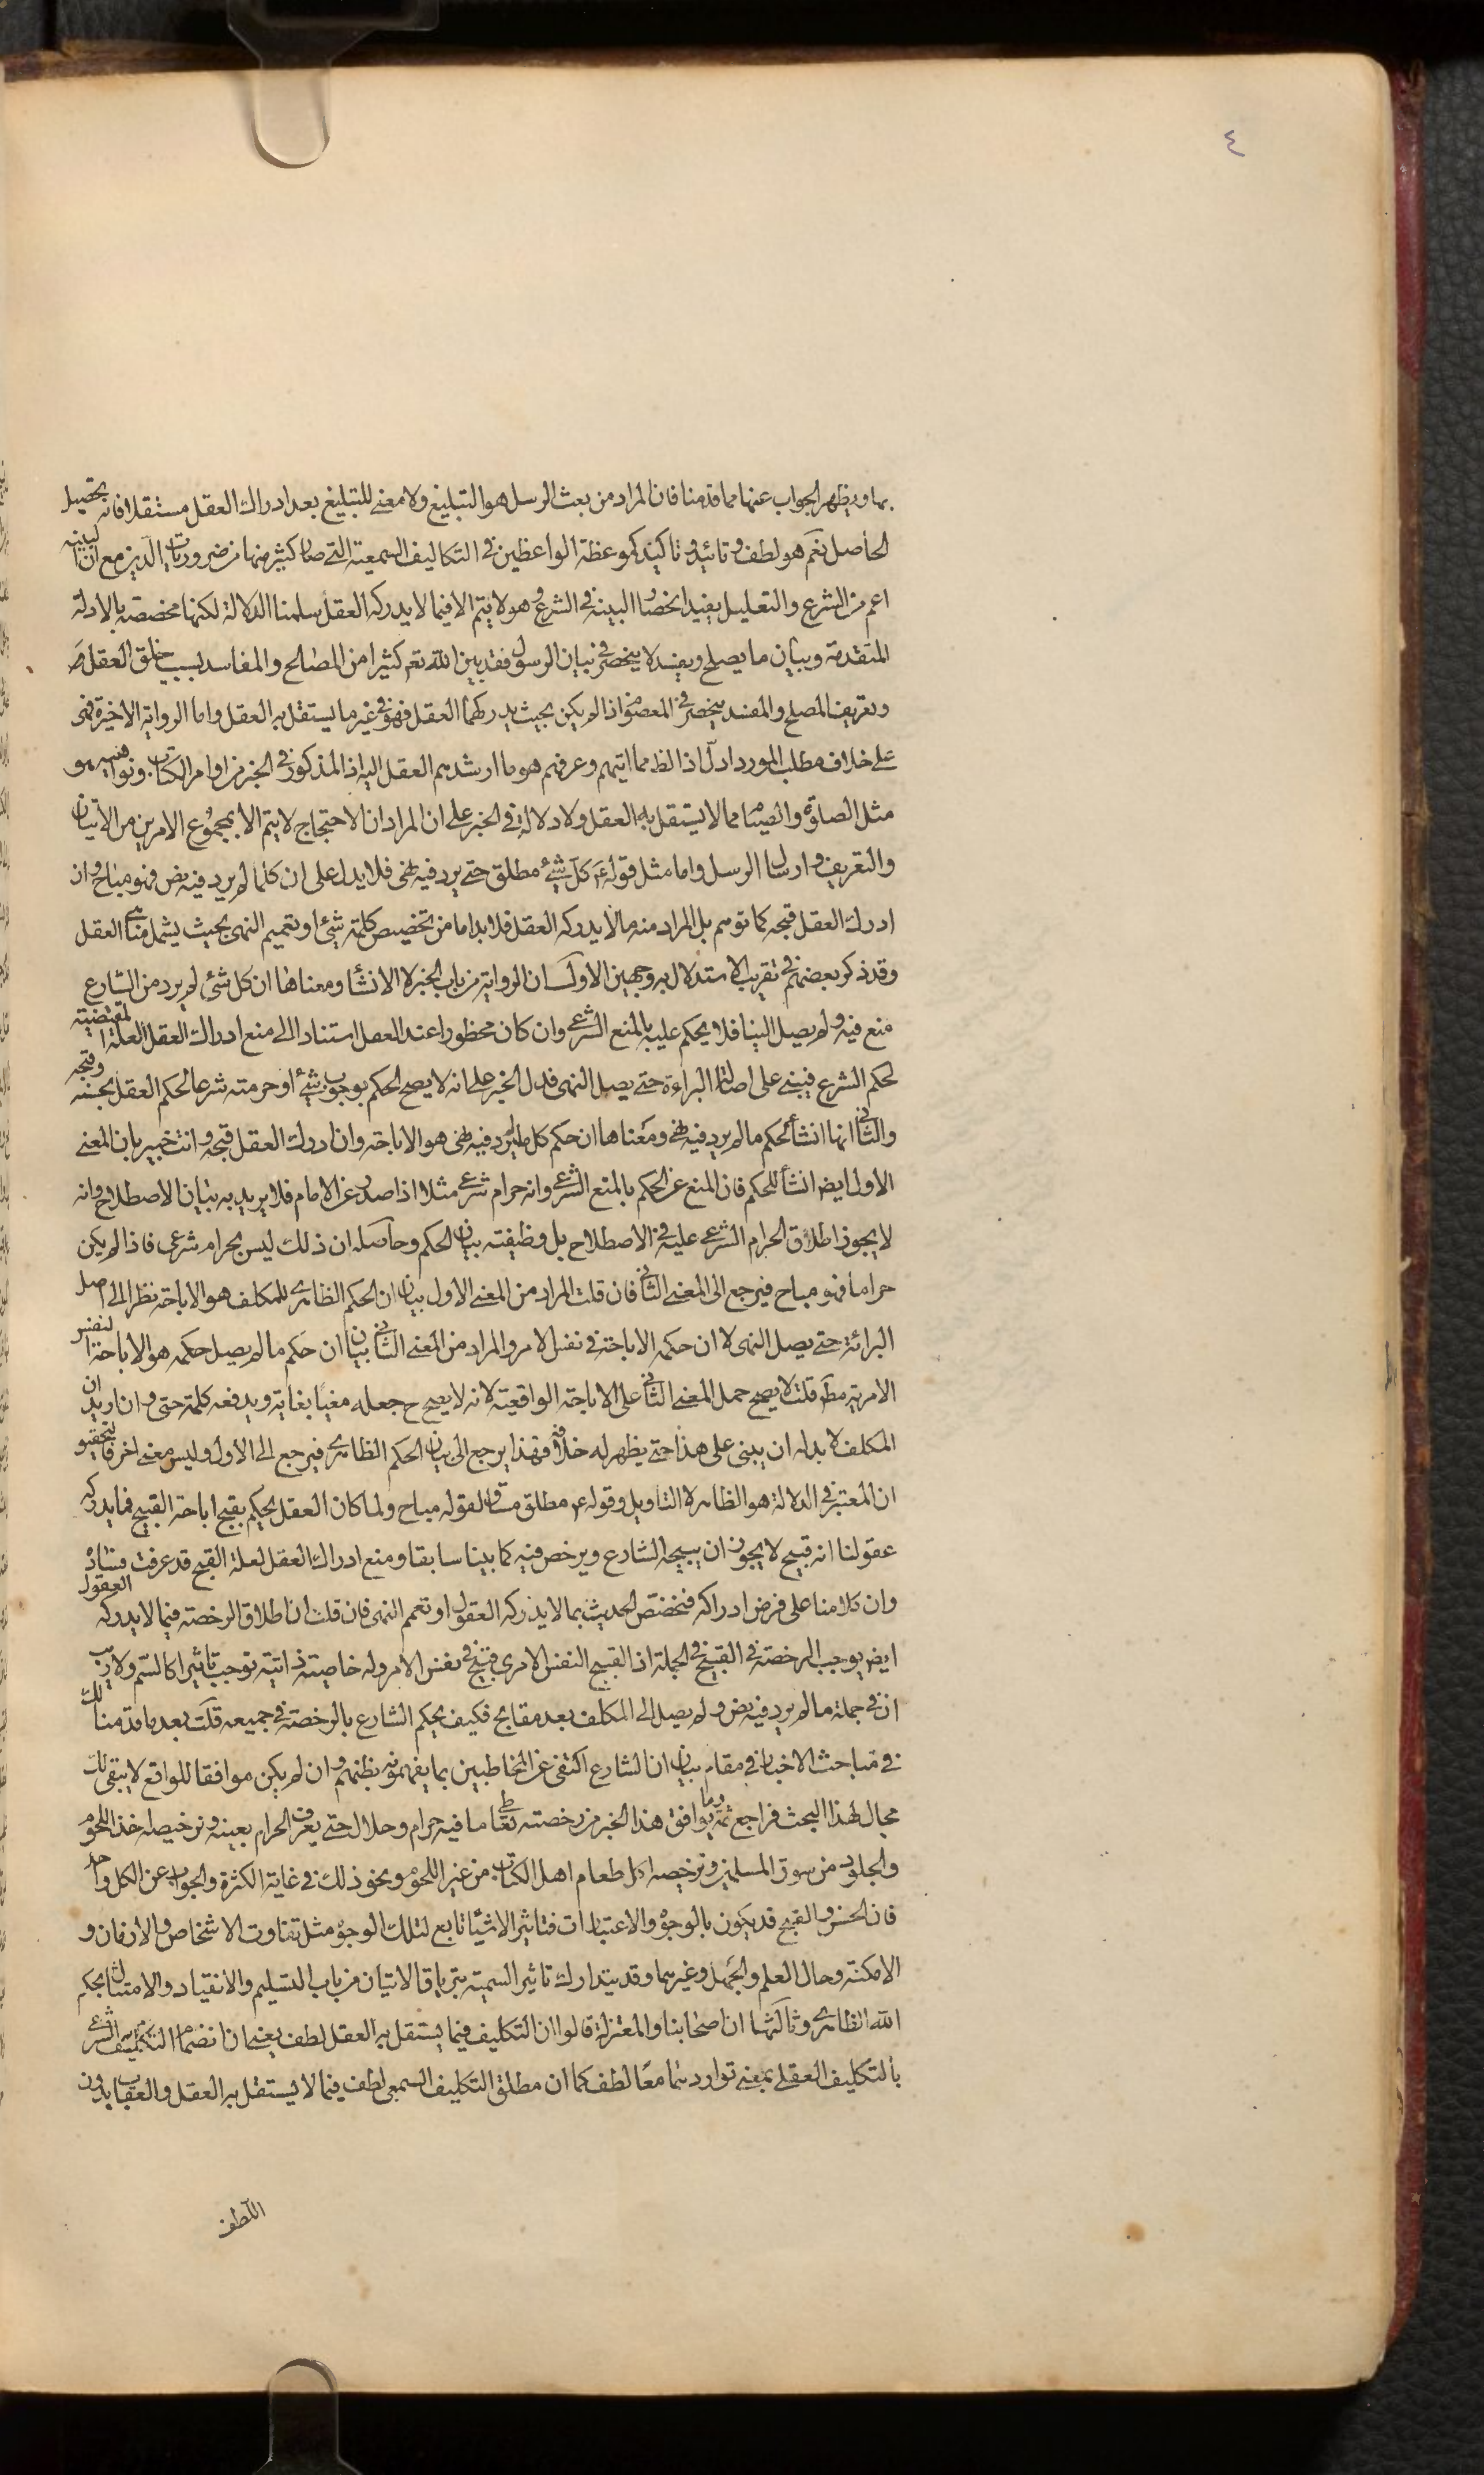 ٤
بها ويظهر الجواب عنها مما قدمنا فان المراد من بعث الرسل هو التبليغ ولا معنى للتبليغ بعد ادراك العقل مستقلا فانه تحصيل
الحاصل نعم هو لطف وتائيد وتاكيد كموعظة الواعظين في التكاليف السمعية التي صار كثير منها من ضروريات الدين مع ان البينة
اعم من الشرع والتعليل يفيد انحصار البينة في الشرع وهو لا يتم الا فيما لا يدركه العقل سلمنا الدلالة لكنها مخصصة بالادلة
المتقدمة وبيان ما يصلح ويفسد لا ينحصر في بيان الرسول فقد بين الله تعم كثيرا من المصالح والمفاسد بسبب خلق العقل
وتعريف المصلح والمفسد ينحصر في المعصوم اذا لم يكن بحيث يدركهما العقل فهو في غير ما يستقل به العقل واما الرواية الاخيرة فهى
على خلاف مطلب المورد ادل اذ الظ مما اتيهم وعرفهم هو ما ارشدهم العقل اليه اذ المذكور في الخبر من اوامر الكتاب ونواهيه هو
مثل الصلوة والصيام مما لا يستقل به العقل ولا دلالة في الخبر على ان المراد ان الاحتجاج لا يتم الا بمجموع الامرين من الاتيان
والتعريف وارسال الرسل واما مثل قوله ع كل شيئ مطلق حتى يرد فيه نهى فلا يدل على ان كلما لم يرد فيه نص فهو مباح وان
ادرك العقل قبحه كما توهم بل المراد منه ما لا يدركه العقل فلا بد اما من تخصيص كلمة شيئ او تعميم النهى بحيث يشمل مناهى العقل
وقد ذكر بعضهم في تقريب الاستدلال به وجهين الاول ان الرواية من باب الخبر لا الانشاء ومعناها ان كل شئ لم يرد من الشارع
منع فيه ولم يصل الينا فلا يحكم عليه بالمنع الشرعي وان كان محظورا عند العقل استنادا الى منع ادراك العقل العلة المقتضية
لحكم الشرع فيبنى على اصالة البراءة حتى يصل النهى فدل الخبر على انه لا يصح الحكم بوجوب شيئ او حرمته شرعا لحكم العقل بحسنه وقبحه
والثاني انها انشاء لحكم ما لم يرد فيه نهى ومعناها ان حكم كل ما لم يرد فيه نهى هو الاباحة وان ادرك العقل قبحه وانت خبير بان المعنى
الاول ايض انشاء للحكم فان المنع عن الحكم بالمنع الشرعي وانه حرام شرعي مثلا اذا صدر عن الامام فلا يريد به بيان الاصطلاح وانه
لا يجوز اطلاق الحرام الشرعي عليه في الاصطلاح بل وظيفته بيان الحكم وحاصله ان ذلك ليس بحرام شرعي فاذا لم يكن
حراما فهو مباح فيرجع الى المعنى الثاني فان قلت المراد من المعنى الاول بيان ان الحكم الظاهري للمكلف هو الاباحة نظرا الى اصل
البرائة حتى يصل النهى لا ان حكمه الاباحة في نفس الامر والمراد من المعنى الثاني بيان ان حكم ما لم يصل حكمه هو الاباحة النفس
الامرية مط قلت لا يصح حمل المعنى الثاني على الاباحة الواقعية لانه لا يصح ح جعله مغيا بغاية ويدفعه كلمة حتى وان اريد ان
المكلف لا بد له ان يبنى على هذا حتى يظهر له خلافه فهذا يرجع الى بيان الحكم الظاهري فيرجع الى الاول وليس معنى اخر فالتحقيق
ان المعتبر في الدلالة هو الظاهر لا التاويل وقوله ع مطلق مساو لقوله مباح ولما كان العقل يحكم بقبح اباحة القبيح فما يدركه
عقولنا انه قبيح لا يجوز ان يبيحه الشارع ويرخص فيه كما بينا سابقا ومنع ادراك العقل لعلة القبح قد عرفت فساده
وان كلامنا على فرض ادراكه فنخصص الحديث بما لا يدركه العقول او نعمم النهى فان قلت ان اطلاق الرخصة فيما لا يدركه العقول
ايض يوجب الرخصة في القبيح في الجملة اذ القبيح النفس الامري قبيح في نفس الامر وله خاصية ذاتية توجب تاثيرا كالسم ولا ريب
ان في جملة ما لم يرد فيه نص ولم يصل الى المكلف بعد مقابح فكيف يحكم الشارع بالرخصة في جميعه قلت بعد ما قدمنا لك
في مباحث الاخبار في مقام بيان ان الشارع اكتفى عن المخاطبين بما يفهمونه بظنهم وان لم يكن موافقا للواقع لا يبقى لك
مجال لهذا البحث فراجع ثمة وما يوافق هذا الخبر من رخصته تعاطي ما فيه حرام وحلال حتى يعرف الحرام بعينه وترخيصه اخذ اللحوم
والجلود من سوق المسلمين وترخيصه اكل طعام اهل الكتاب من غير اللحوم ونحو ذلك في غاية الكثرة والجواب عن الكل واحد
فان الحسن والقبح قد يكون بالوجوه والاعتبارات فتاثير الاشياء تابع لتلك الوجوه مثل تفاوت الاشخاص والازمان و
الامكنة وحال العلم والجهل وغيرهما وقد يتدارك تاثير السمية بترياق الاتيان من باب التسليم والانقياد والامتثال بحكم
الله الظاهري وثالثها ان اصحابنا والمعتزلة قالوا ان التكليف فيما يستقل به العقل لطف يعني ان انضمام التكليف الشرعي
بالتكليف العقلي بمعنى تواردهما معا لطف كما ان مطلق التكليف السمعي لطف فيما لا يستقل به العقل والعقاب بدون
اللطف